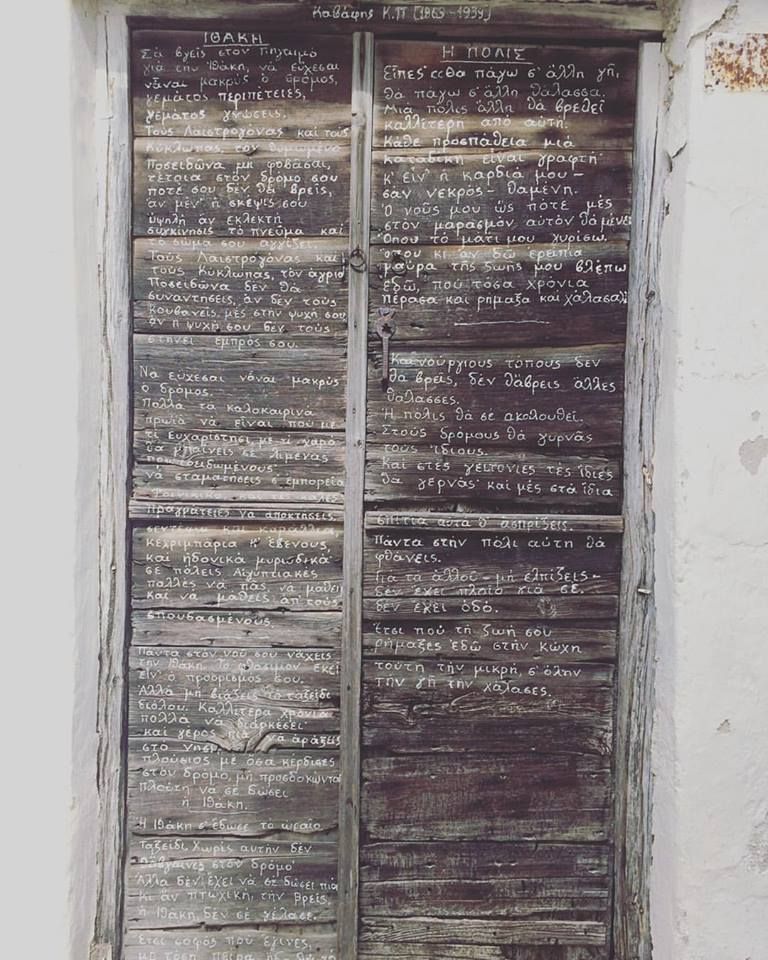 Καβάφης Κ.Π [1863-1933]
ΙΘΑΚΗ
Σὰ βγεῖς στὸν πηγαιμὸ
γιὰ τὴν Ἰθάκη, νὰ εὔχεσαι
νἆναι μακρὺς ὁ δρόμος,
γεμάτος περιπέτειες,
γεμάτος γνώσεις.
Τοὺς Λαιστρυγόνας καὶ τοὺς
Κύκλωπας, τὸν θυμωμένο
Ποσειδῶνα μὴ φοβᾶσαι,
τέτοια στὸν δρόμο σου
ποτέ σου δὲν θὰ βρεῖς,
ἂν μέν' ἡ σκέψις σου
ὑψηλὴ ἂν ἐκλεκτὴ
συγκίνησις τὸ πνεῦμα καὶ
τὸ σῶμα σου ἀγγίζει.
Τοὺς Λαιστρυγόνας καὶ
τοὺς Κύκλωπας, τὸν ἄγριο
Ποσειδῶνα δὲν θὰ
συναντήσεις, ἂν δὲν τοὺς
κουβανεῖς μὲς στὴν ψυχή σου
ἂν ἡ ψυχή σου δὲν τοὺς
στήνει ἐμπρός σου.
Νὰ εὔχεσαι νἆναι μακρὺς
ὁ δρόμος.
Πολλὰ τὰ καλοκαιρινὰ
πρωϊὰ νὰ εἶναι ποὺ μὲ
τί εὐχαρίστησι, μὲ τί χαρὰ
θὰ μπαίνεις σὲ λιμένας
πρωτοειδωμένους
νὰ σταματήσεις σ' ἐμπορεῖα
Φοινικικὰ
πραγμάτειες νὰ ἀποκτήσεις
σεντέφια καὶ κοράλλια,
κεχριμπάρια κ' ἔβενους,
καὶ ἡδονικὰ μυρωδικὰ
σὲ πόλεις Αἰγυπτιακὲς
πολλὲς νὰ πᾶς νὰ μάθεις
καὶ νὰ μάθεις ἀπ' τοὺς
σπουδασμένους.
Πάντα στὸν νοῦ σου νἄχεις
τὴν Ἰθάκη. Τὸ φθάσιμον ἐκεῖ
εἶν' ὁ προορισμός σου.
Ἀλλὰ μὴ βιάζεις τὸ ταξεῖδι
διόλου. Καλλίτερα χρόνια
πολλὰ νὰ διαρκέσει
καὶ γέρος πιὰ νὰ ἀράξεις
στὸ νησὶ
πλούσιος μὲ ὅσα κέρδισες
στὸν δρόμο, μὴ προσδοκώντα
πλούτη νὰ σὲ δώσει
ἡ Ἰθάκη.
Ἡ Ἰθάκη σ' ἔδωσε τὸ ὡραῖο
ταξεῖδι. Χωρὶς αὐτὴν δὲν
θἄβγαινες στὸν δρόμο
Ἀλλὰ δὲν ἔχει νὰ σὲ δώσει πιὰ
Κι ἂν πτωχικὴ τὴν βρεῖς,
ἡ Ἰθάκη δὲν σὲ γέλασε.
Ἔτσι σοφὸς ποὺ ἔγινες,
μὲ τόση πεῖρα
Η ΠΟΛΙΣ
Εἶπες «Θὰ πάγω σ' ἄλλη γῆ,
θὰ πάγω σ' ἄλλη θάλασσα.
Μιὰ πόλις ἄλλη θὰ βρεθεῖ
καλλίτερη ἀπὸ αὐτή.
Κάθε προσπάθεια μιὰ
καταδίκη εἶναι γραφτή
κ' εἶν' ἡ καρδιά μου -
σὰν νεκρὸς - θαμένη.
Ὁ νοῦς μου ὣς πότε μὲς
στὸν μαρασμὸν αὐτὸν θὰ μένει
Ὅπου τὸ μάτι μου γυρίσω
ὅπου κι ἂν δῶ ἐρείπια
μαῦρα τῆς ζωῆς μου βλέπω
ἐδῶ, ποὺ τόσα χρόνια
πέρασα καὶ ρήμαξα καὶ χάλασα»
Καινούργιους τόπους δὲν
θὰ βρεῖς, δὲν θἄβρεις ἄλλες
θάλασσες.
Ἡ πόλις θὰ σὲ ἀκολουθεῖ.
Στοὺς δρόμους θὰ γυρνᾶς
τοὺς ἴδιους.
Καὶ στὲς γειτονιὲς τὲς ἴδιες
θὰ γερνᾶς καὶ μὲς στὰ ἴδια
σπίτια αὐτὰ θ' ἀσπρίζεις.
Πάντα στὴν πόλι αὐτὴ θὰ
φθάνεις.
Γιὰ τὰ ἀλλοῦ - μὴ ἐλπίζεις -
δὲν ἔχει πλοῖο γιὰ σέ.
δὲν ἔχει ὁδό.
Ἔτσι ποὺ τὴ ζωή σου
ρήμαξες ἐδῶ στὴν κώχη
τούτη τὴν μικρή, σ' ὅλην
τὴν γῆ τὴν χάλασες.